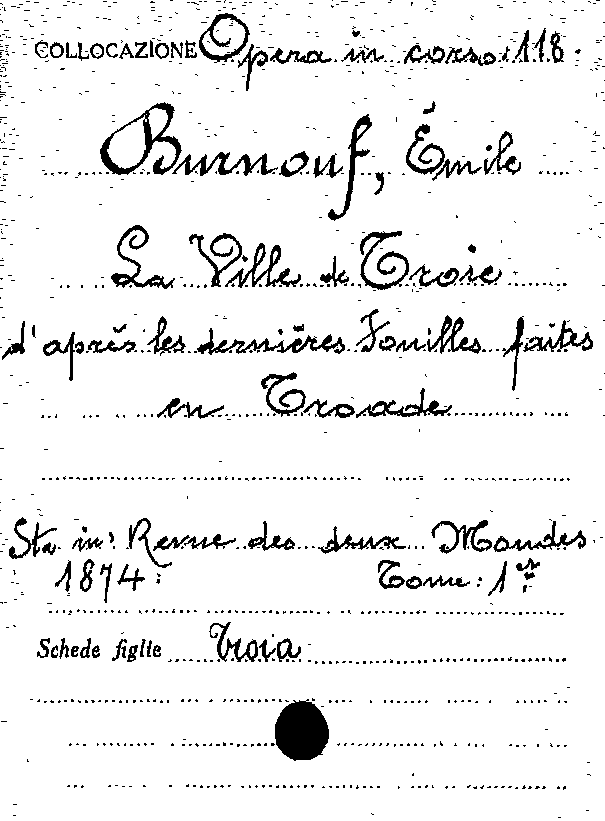 COLLOCAZIONE Opera in corso: 118.
Burnouf, Émile
La Ville de Troie
d'après les dernières Fouilles faites
en Troade
Sta in: Revue des deux Mondes
1874: Tome: 1er
Schede figlie Troia